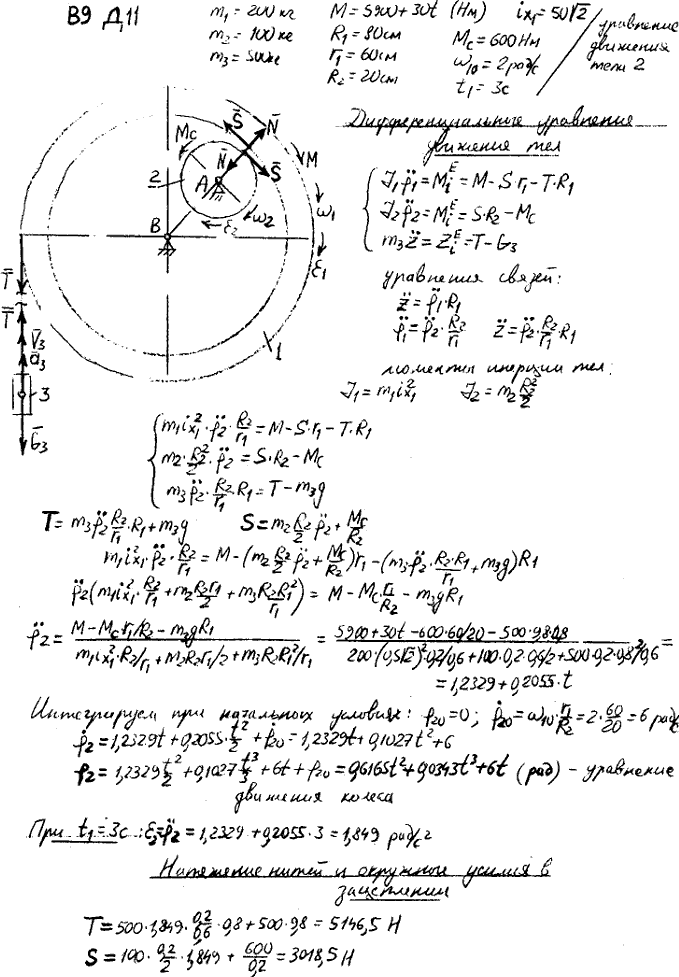 В9 Д11
m₁ = 200 кг M = 5900 + 30t (Нм) ix₁ = 50√2
m₂ = 100 кг R₁ = 80 см Mc = 600 Нм
m₃ = 500 кг r₁ = 60 см ω₁₀ = 2 рад/с
R₂ = 20 см t₁ = 3с
уравнение
движения
тела 2
Дифференциальные уравнения
движения тел
J₁φ̈₁ = Mᵢᴱ = M - S·r₁ - T·R₁
J₂φ̈₂ = Mᵢᴱ = S·R₂ - Mc
m₃z̈ = Zᵢᴱ = T - G₃
уравнения связей:
z̈ = φ̈₁·R₁
φ̈₁ = φ̈₂·R₂/r₁ z̈ = φ̈₂·R₂/r₁·R₁
моменты инерции тел:
J₁ = m₁i²x₁ J₂ = m₂R₂²/2
Mc S̄ N̄ M
2 A N̄ S̄
ω₁
ω₂
ε₂
B
ε₁
T̄
T̄
V̄₃
ā₃
3
1
Ḡ₃
m₁i²x₁·φ̈₂·R₂/r₁ = M - S·r₁ - T·R₁
m₂·R₂²/2·φ̈₂ = S·R₂ - Mc
m₃φ̈₂·R₂/r₁·R₁ = T - m₃g
T = m₃φ̈₂R₂/r₁·R₁ + m₃g S = m₂R₂/2 φ̈₂ + Mc/R₂
m₁i²x₁·φ̈₂·R₂/r₁ = M - (m₂R₂/2 φ̈₂ + Mc/R₂)r₁ - (m₃·φ̈₂·R₂·R₁/r₁ + m₃g)R₁
φ̈₂(m₁i²x₁·R₂/r₁ + m₂R₂r₁/2 + m₃R₂R₁²/r₁) = M - Mc·r₁/R₂ - m₃gR₁
φ̈₂ = (M - Mc·r₁/R₂ - m₃gR₁)/(m₁i²x₁·R₂/r₁ + m₂R₂r₁/2 + m₃R₂R₁²/r₁) = (5900 + 30t - 600·60/20 - 500·9,8·0,8)/(200·(0,5√2)²·0,2/0,6 + 100·0,2·0,6/2 + 500·0,2·0,8²/0,6) =
= 1,2329 + 0,2055·t
Интегрируем при начальных условиях: φ₂₀ = 0; φ̇₂₀ = ω₁₀·r₁/R₂ = 2·60/20 = 6 рад/с
φ̇₂ = 1,2329t + 0,2055·t²/2 + φ̇₂₀ = 1,2329t + 0,1027t² + 6
φ₂ = 1,2329t²/2 + 0,1027t³/3 + 6t + φ₂₀ = 0,6165t² + 0,0343t³ + 6t (рад) - уравнение
движения колеса
При t₁ = 3с: ε₂ = φ̈₂ = 1,2329 + 0,2055·3 = 1,849 рад/с²
Натяжение нитей и окружные усилия в
зацеплении
T = 500·1,849·0,2/0,6·0,8 + 500·9,8 = 5146,5 Н
S = 100·0,2/2·1,849 + 600/0,2 = 3018,5 Н